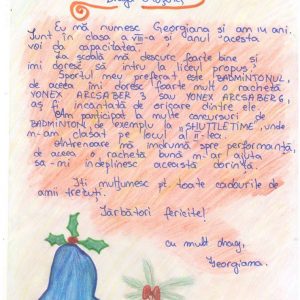 Dragă Moșule,
Eu mă numesc Georgiana și am 14 ani.
Sunt în clasa a VII-a și anul acesta
voi da capacitatea.
La școală mă descurc foarte bine și
îmi doresc să intru la liceul propus.
Sportul meu preferat este BADMINTONUL,
de aceea îmi doresc foarte mult o rachetă
YONEX ARCSABER 3 sau YONEX ARCSABER 6,
aș fi încântată de oricare dintre ele.
Am participat la multe concursuri de
BADMINTON, de exemplu la „SHUTTLE TIME", unde
m-am clasat pe locul al II-lea.
Antrenoare mă îndrumă spre performanță,
de aceea o rachetă bună m-ar ajuta
să-mi îndeplinesc această dorință.
Îți mulțumesc pt. toate cadourile de
anii trecuți.
Sărbători fericite!
cu mult drag,
Georgiana.